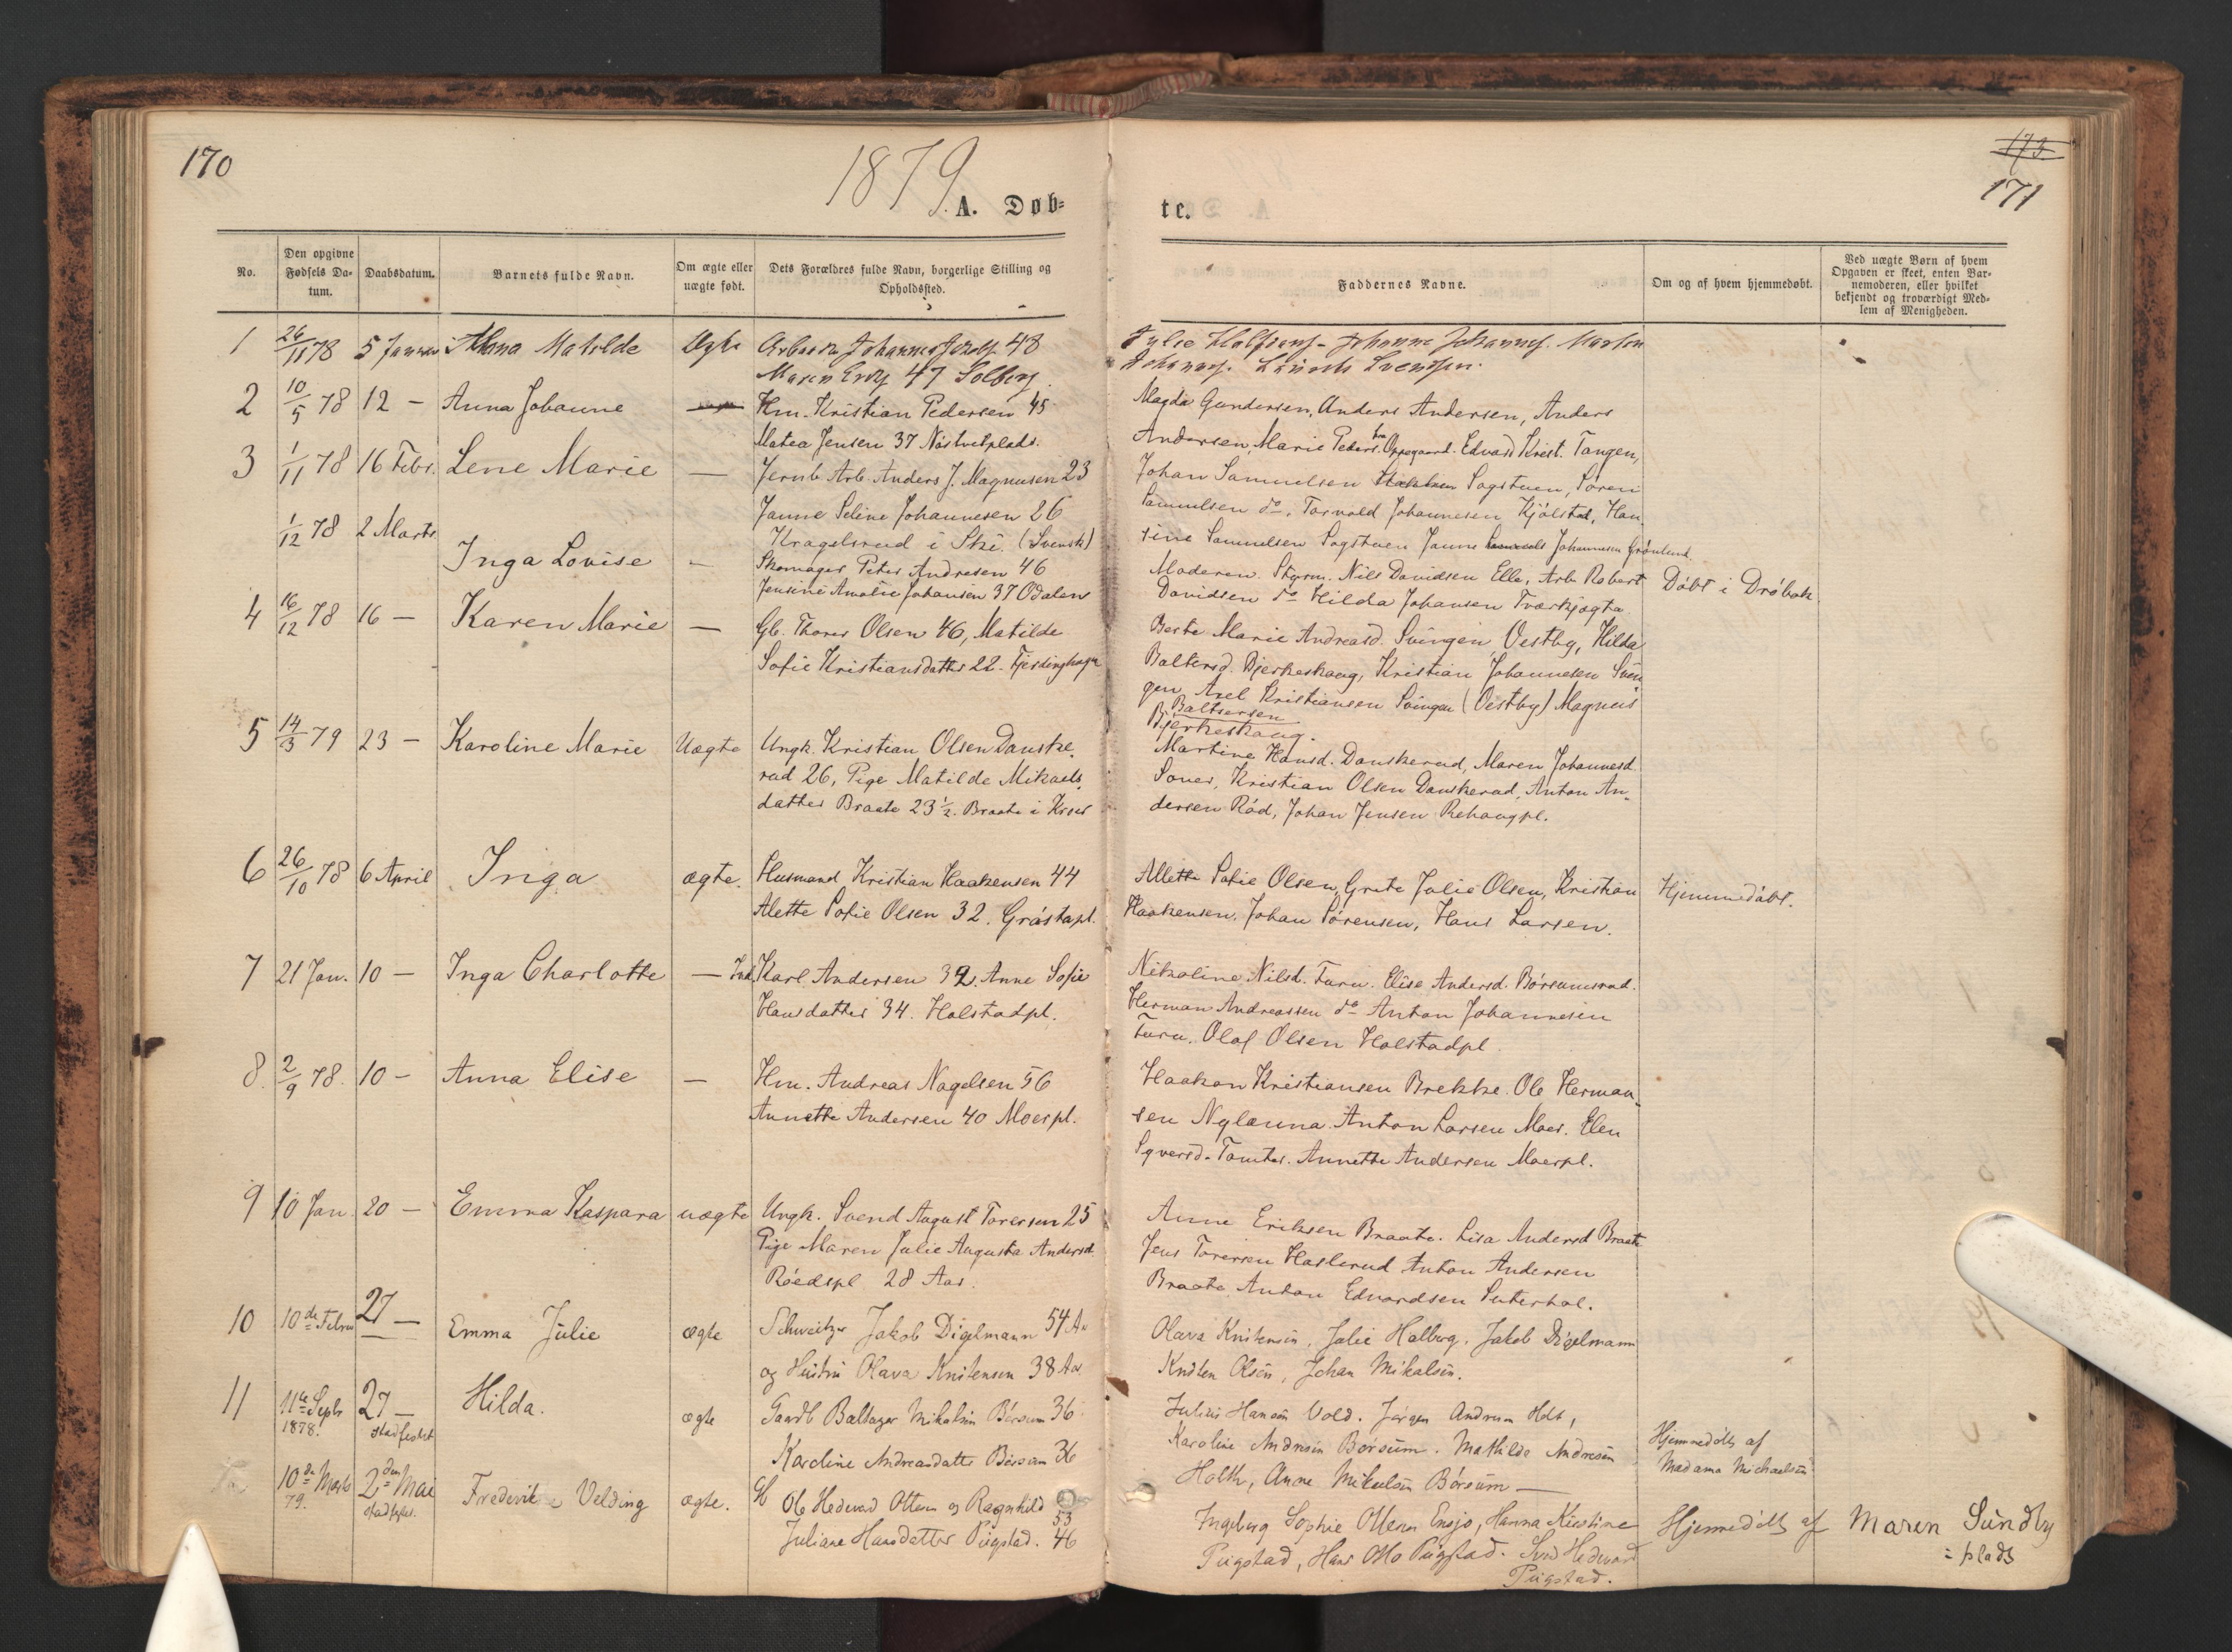 170
1879
A. Døb=
te.
173
171
No.
Den opgivne Fødsels Da=tum.
Daabsdatum.
Barnets fulde Navn.
Om ægte eller uægte født.
Dets Forældres fulde Navn, borgerlige Stilling og Opholdssted.
Faddernes Navne.
Om og af hvem hjemmedøbt.
Ved uægte Børn af hvem Opgaven er skeet, enten Bar=nemoderen, eller hvilket bekjendt og troværdigt Med=lem af Menigheden.
1 26/11 78 5 Januar Matilde Ægte Johannes 48
Maren 47 Solberg
Johanne Johannes. Marten
Svendsen.
2 10/5 78 12 — Anna Johanne — Hm. Kristian Pedersen 45
Matea Jensen 37 Nästvetplads.
Magda Gundersen, Anders Andersen, Anders
Andersen, Marie Peders. fra Oppegaard. Edvard Krist. Tangen,
3 1/11 78 16 Febr. Lene Marie — Jernb. Arb. Anders J. Magnusen 23
Janne Seline Johannesen 26
Kragelsrud i Ski. (Svensk)
Johan Samuelsen Sagstuen, Søren
Samuelsen do. Torvald Johannesen Kjølstad, Han
sine Samuelsen Sagstuen Janne Johannesen Grønlund
1/12 78 2 Marts Inga Lovise — Skomager Peter Andresen 46
Jensine Amalie Johansen 37 Odalen
Moderen. Styrm. Nils Davidsen Elle, Arb. Robert
Davidsen do Hilda Johansen Tværkjægta
Døbt i Drøbak
4 16/12 78 16 — Karen Marie — Gb. Thorer Olsen 46, Matilde
Sofie Kristiansdatter 22. Fjeldinghagn
Berte Marie Andreasd. Svingen, Vestby, Hilda
Baltersd. Bjerkeskaug, Kristian Johannesen Svin
gen, Axel Kristiansen Svingen (Vestby) Magnus
Baltsersen
Bjerkeskaug.
5 14/3 79 23 — Karoline Marie Uægte Ungk. Kristian Olsen Danske.
rud 26, Pige Matilde Mikaels.
datter Braate 23 1/2. Braate i Kroer
Martine Hansd. Danskerud, Maren Johannesd.
Soner, Kristian Olsen Danskerud, Anton An.
dersen Rød, Johan Jensen Rehaugpl.
6 26/10 78 6 April Inga ægte. Husmand Kristian Haakensen 44
Alette Sofie Olsen 32. Gråstapl.
Alette Sofie Olsen, Grete Julie Olsen, Kristian
Haakensen, Johan Sørensen, Hans Larsen.
Hjemmedøbt.
7 21 Jan. 10 — Inga Charlotte — Ind. Karl Andersen 32. Anne Sofie
Hansdatter 34. Holstadpl.
Nikoline Nilsd. Furu. Elise Andersd. Børsumsrud.
Herman Andreassen do Anton Johannesen
Furu. Olaf Olsen Holstadpl
8. 2/9 78. 10 — Anna Elise — Hm. Andreas Nagelsen 56
Annette Andersen 40 Moerpl.
Haakon Kristiansen Brekke. Ole Herman.
sen Nylænna. Anton Larsen Moer. Elen
Syversd. Tomter. Annette Andersen Moerpl.
9 10 Jan. 20 — Emma Kaspara uægte Ungk. Svend August Torersen 25
Pige Maren Julie Augusta Andersd.
Røedspl 28 Aar.
Anne Eriksen Braate. Lisa Andersd Braate
Jens Torersen Haslerud Anton Andersen
Braate Anton Edvardsen Seterhol.
10 10de Febru 27 — Emma Julie ægte Schweitzer Jakob Digelmann 54 Aar
og Hustru Olava Knutensen 38 Aar
Olava Knutensen, Julie Holberg. Jakob Digelmann
Knuten Olsen, Johan Mikalsen.
11 11te Septr 1878. 27 — stadfæstet Hilda. ægte Gaardb. Baltazer Mikalsen Børsum 36
Karoline Andreasdatter Børsum 36
Julius Hansen Vold. Jørgen Andresen Holt,
Karoline Andresen Børsum. Mathilde Andresen
Holth, Anne Mikkelsen Børsum —
Hjemmedøbt af
Madama Michaelsen
10de Marts 79. 2den Mai stadfæstet. Frederikke Velding ægte. Gb Ole Hedevard Ottersen og Ragnhild 53
Juliane Hansdatter Pügstad. 46
Ingeborg Sophie Ottersen Ensjo, Hanna Kirstine
Pügstad, Hans Otto Pügstad. Svend Hedevard
Pügstad.
Hjemmedøbt af Maren Sundby
=plads